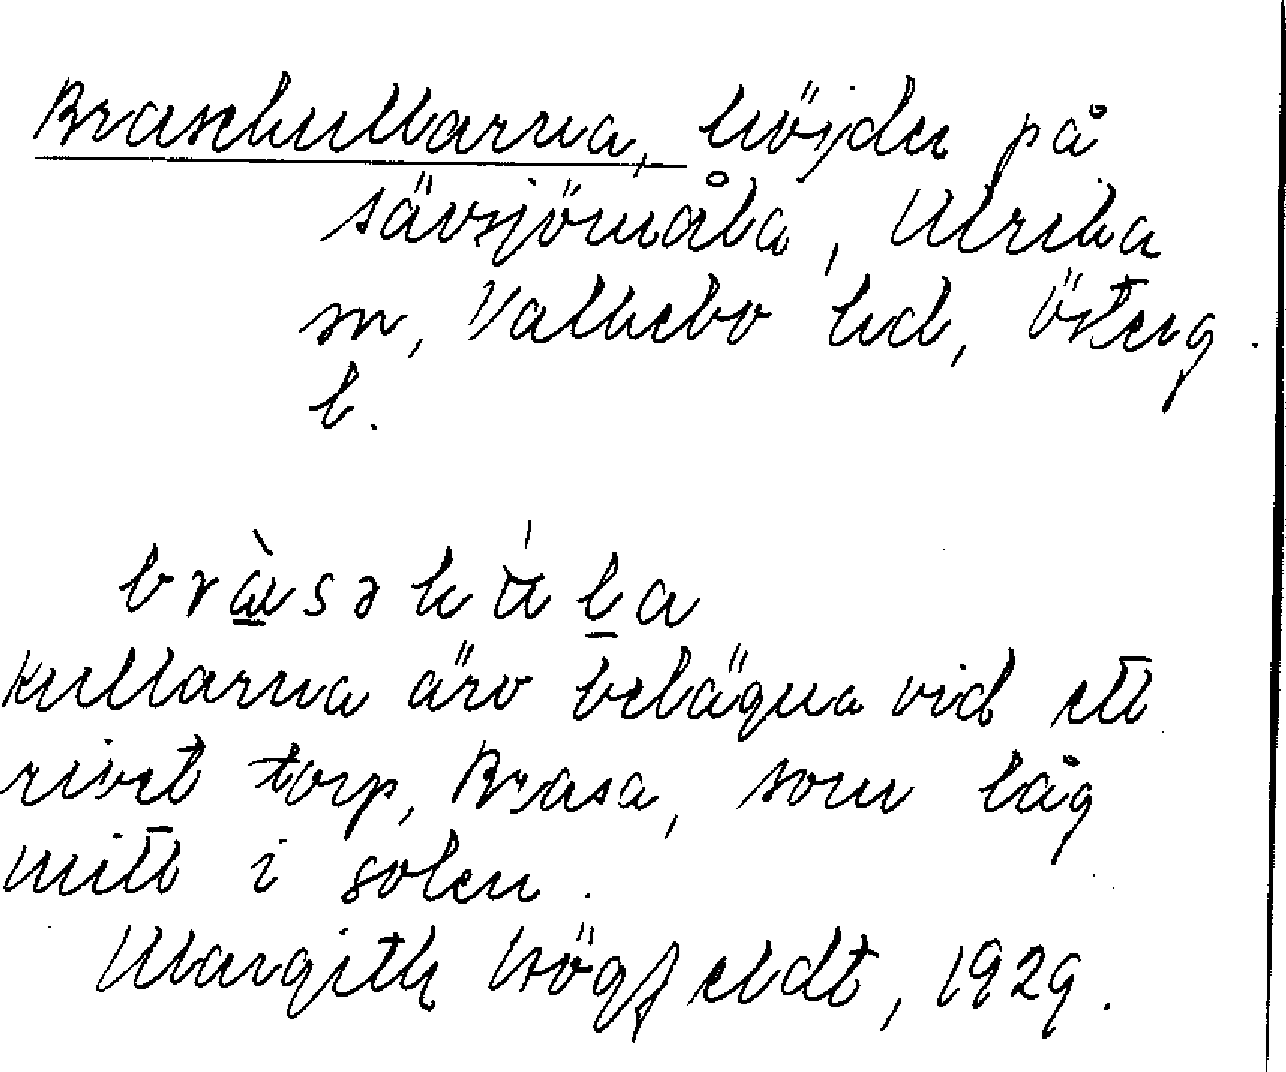 Brasekullarna, höjder på
sävsjömåla, Ulrika
sn, Valkebo hd, Österg.
l.
bràsəkúl̠a
Kullarna äro belägna vid ett
rivet torp, Brasa, som låg
mitt i solen.
Margith Högfeldt, 1929.